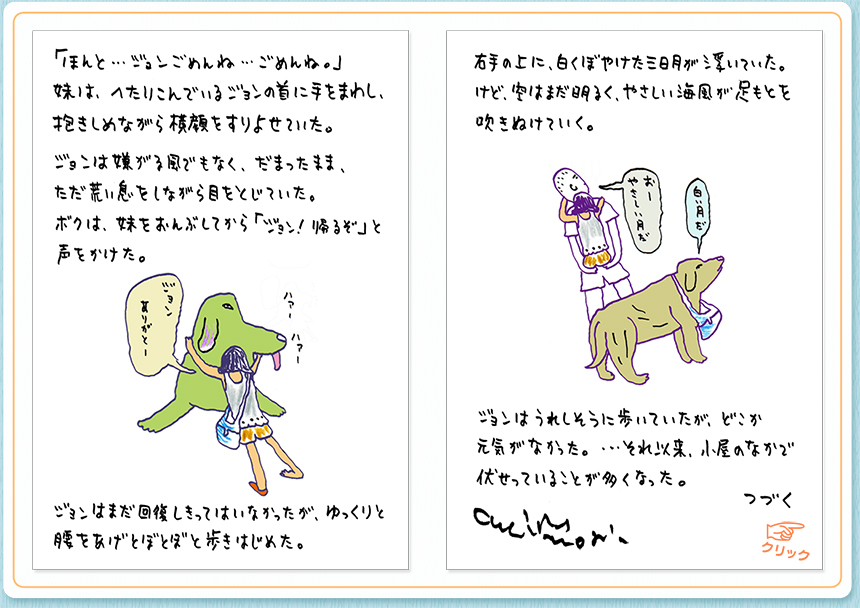 「ほんと…ジョンごめんね…ごめんね。」
妹は、へたりこんでいるジョンの首に手をまわし、
抱きしめながら横顔をすりよせていた。
ジョンは嫌がる風でもなく、だまったまま、
ただ荒い息をしながら目をとじていた。
ボクは、妹をおんぶしてから「ジョン!帰るぞ」と
声をかけた。
ジョン
ありがとー
ハァー
ハァー
ジョンはまだ回復しきってはいなかったが、ゆっくりと
腰をあげとぼとぼと歩きはじめた。
右手の上に、白くぼやけた三日月が浮いていた。
けど、空はまだ明るく、やさしい海風が足もとを
吹きぬけていく。
おー
やさしい月だ
白い月だ
ジョンはうれしそうに歩いていたが、どこか
元気がなかった。…それ以来、小屋のなかで
伏せっていることが多くなった。
つづく
クリック